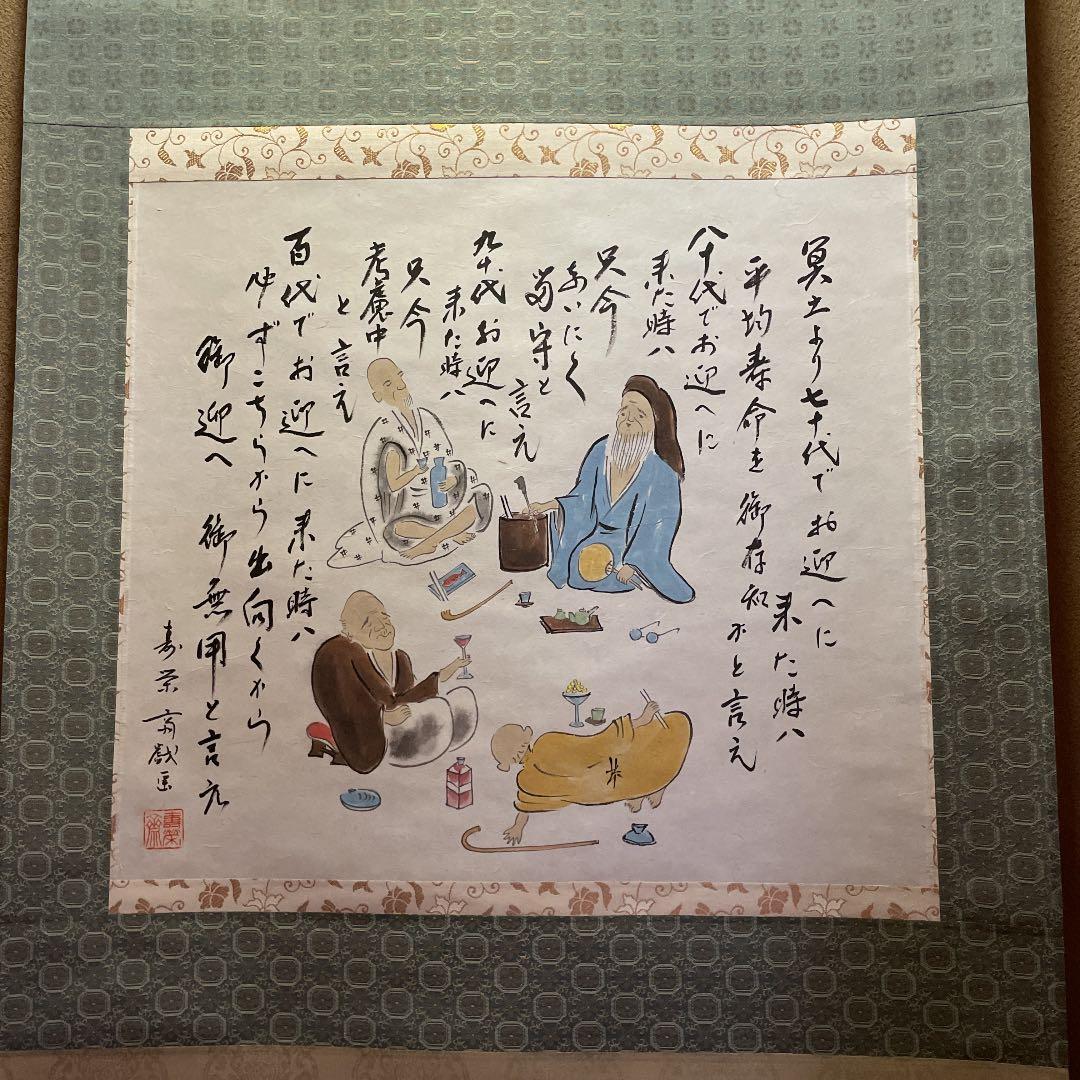 冥土より七十代でお迎へに
来た時ハ
平均寿命を御存知かと言え
八十代でお迎へに
来た時ハ
只今
あいにく
留守と
言え
九十代お迎へに
来た時ハ
只今
考慮中
と言え
百代でお迎へに来た時ハ
せずこちらから出向くから
御迎へ御無用と言え
寿栄
戯画
米